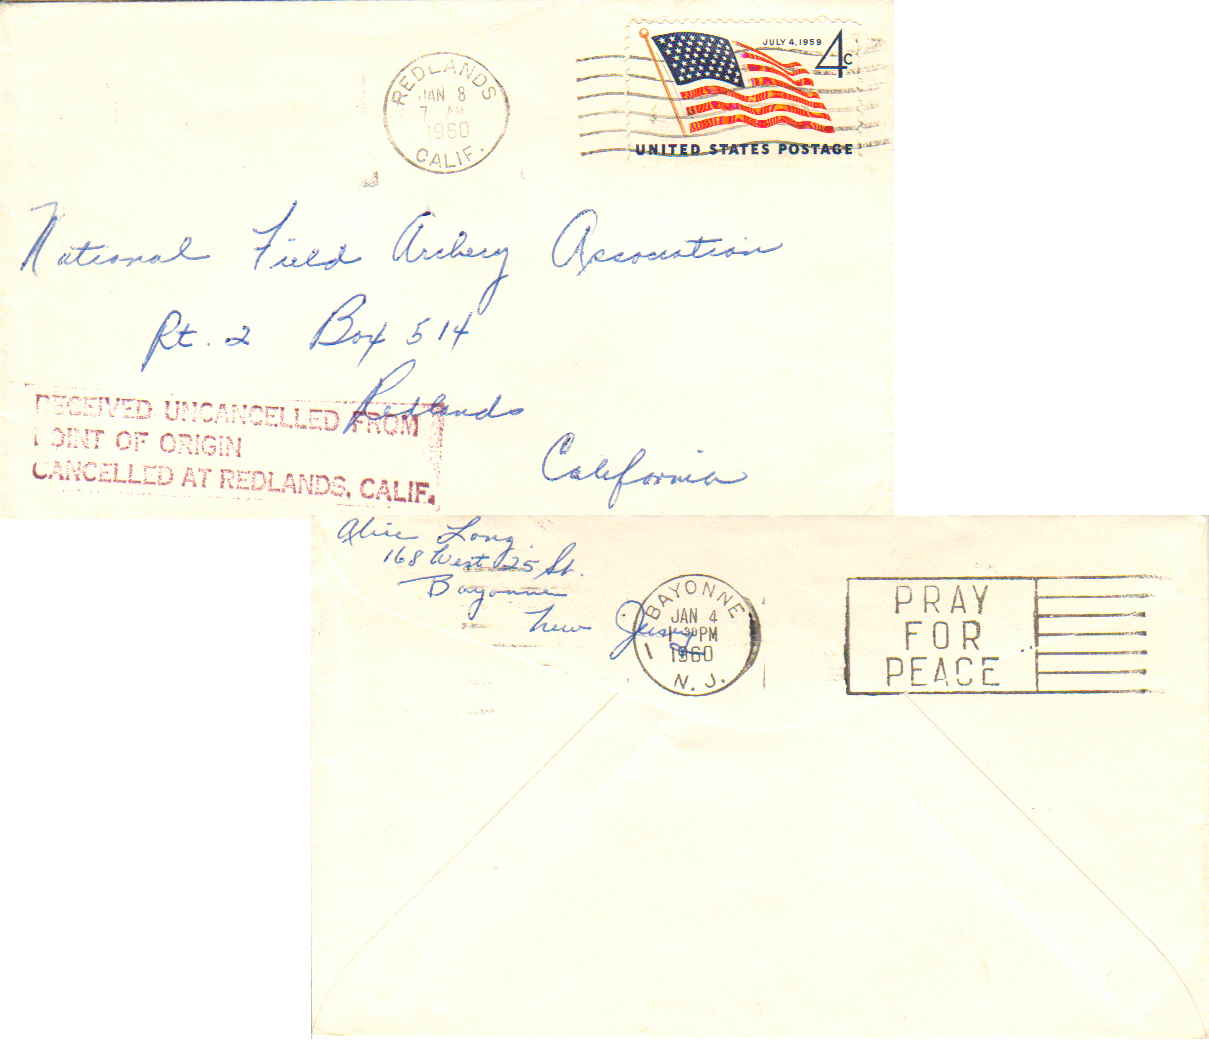 REDLANDS
JAN 8
7 AM
1960
CALIF.
JULY 4, 1959
4c
UNITED STATES POSTAGE
National Field Archery Association
Rt. 2 Box 514
Redlands
California
RECEIVED UNCANCELLED FROM
POINT OF ORIGIN
CANCELLED AT REDLANDS, CALIF.
Alice Long
168 West 25 St.
Bayonne
New Jersey
BAYONNE
JAN 4
30 PM
1960
N. J.
PRAY
FOR
PEACE